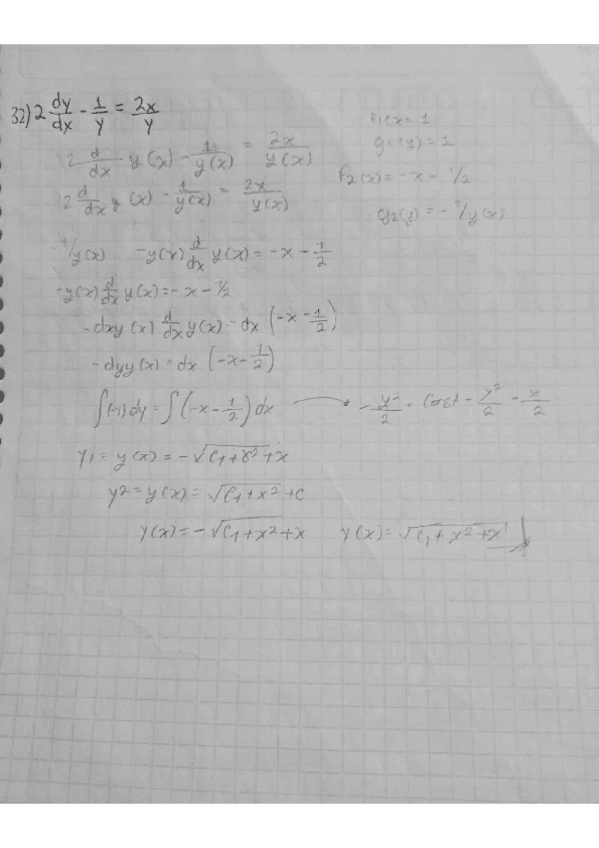 32) 2 dy/dx - 1/y = 2x/y
2 d/dx y(x) - 1/y(x) = 2x/y(x)
2 d/dx y(x) - 1/y(x) = 2x/y(x)
g1(y) = 1
f2(x) = -x - 1/2
g2(y) = -1/y(x)
-1/y(x) -y(x) d/dx y(x) = -x - 1/2
-y(x) d/dx y(x) = -x - 1/2
-dxy(x) d/dx y(x) = dx (-x - 1/2)
-dyy(x) = dx (-x - 1/2)
∫(-y) dy = ∫(-x - 1/2) dx → - y²/2 =
y1 = y(x) = -√C1 + x² + x
y2 = y(x) = √C1 + x² + C
y(x) = -√C1 + x² + x y(x) = √C1 + x² + x